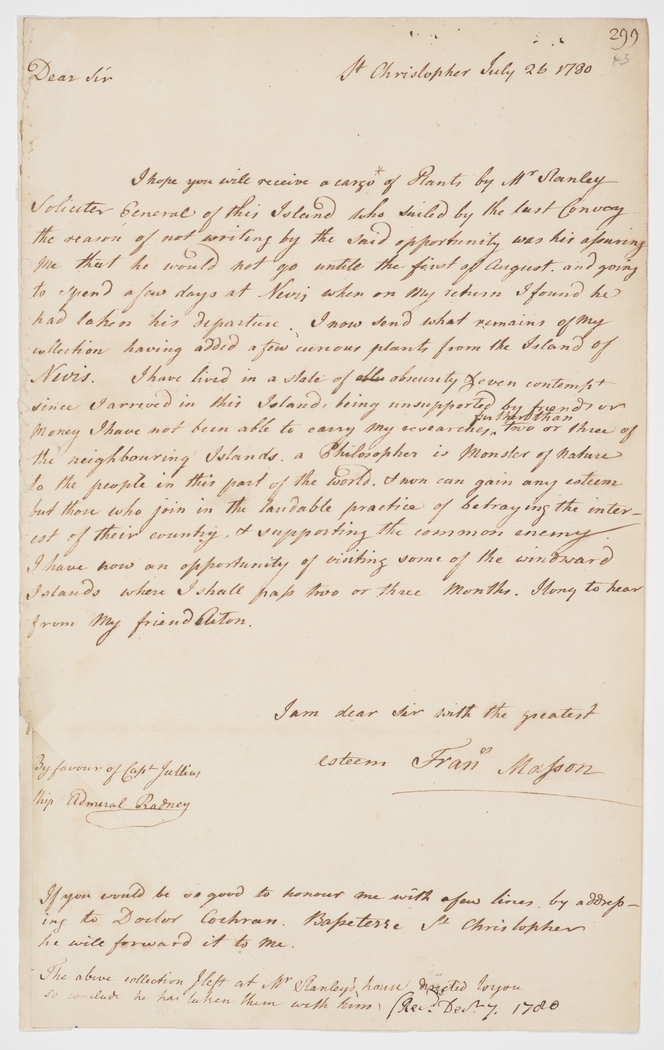 299
43
Dear Sir
St Christopher July 26 1780
I hope you will receive a cargo* of Plants by Mr Stanley
Soliciter General of this Island who sailed by the last Convoy
the reason of not writing by the said opportunity was his assuring
me that he would not go untile the first of August. and going
to spend a few days at Nevis when on my return I found he
had taken his departure. I now send what remains of my
collection having added a few curious plants from the Island of
Nevis. I have lived in a state of obscurity & even contempt
since I arrived in this Island, being unsupported by friends or
further than
Money I have not been able to carry my researches, two or three of
the neighbouring Islands. a Philosopher is Monster of Nature
to the people in this part of the world. & non can gain any esteem
but those who join in the laudable practice of betraying the inter-
est of their country, & supporting the common enemy.
I have now an opportunity of visiting some of the windward
Islands where I shall pass two or three months. I long to hear
from my friend Aiton.
I am dear Sir with the greatest
esteem Frans Masson
By favour of Capt Jullius
Ship Admiral Rodney
If you would be so good to honour me with a few lines. by address-
ing to Doctor Cochran. Basseterre St Christopher
he will forward it to me.
The above collection I left at Mr Stanley's house directed to you
so conclude he has taken them with him. (Recd. Decr. 7. 1780